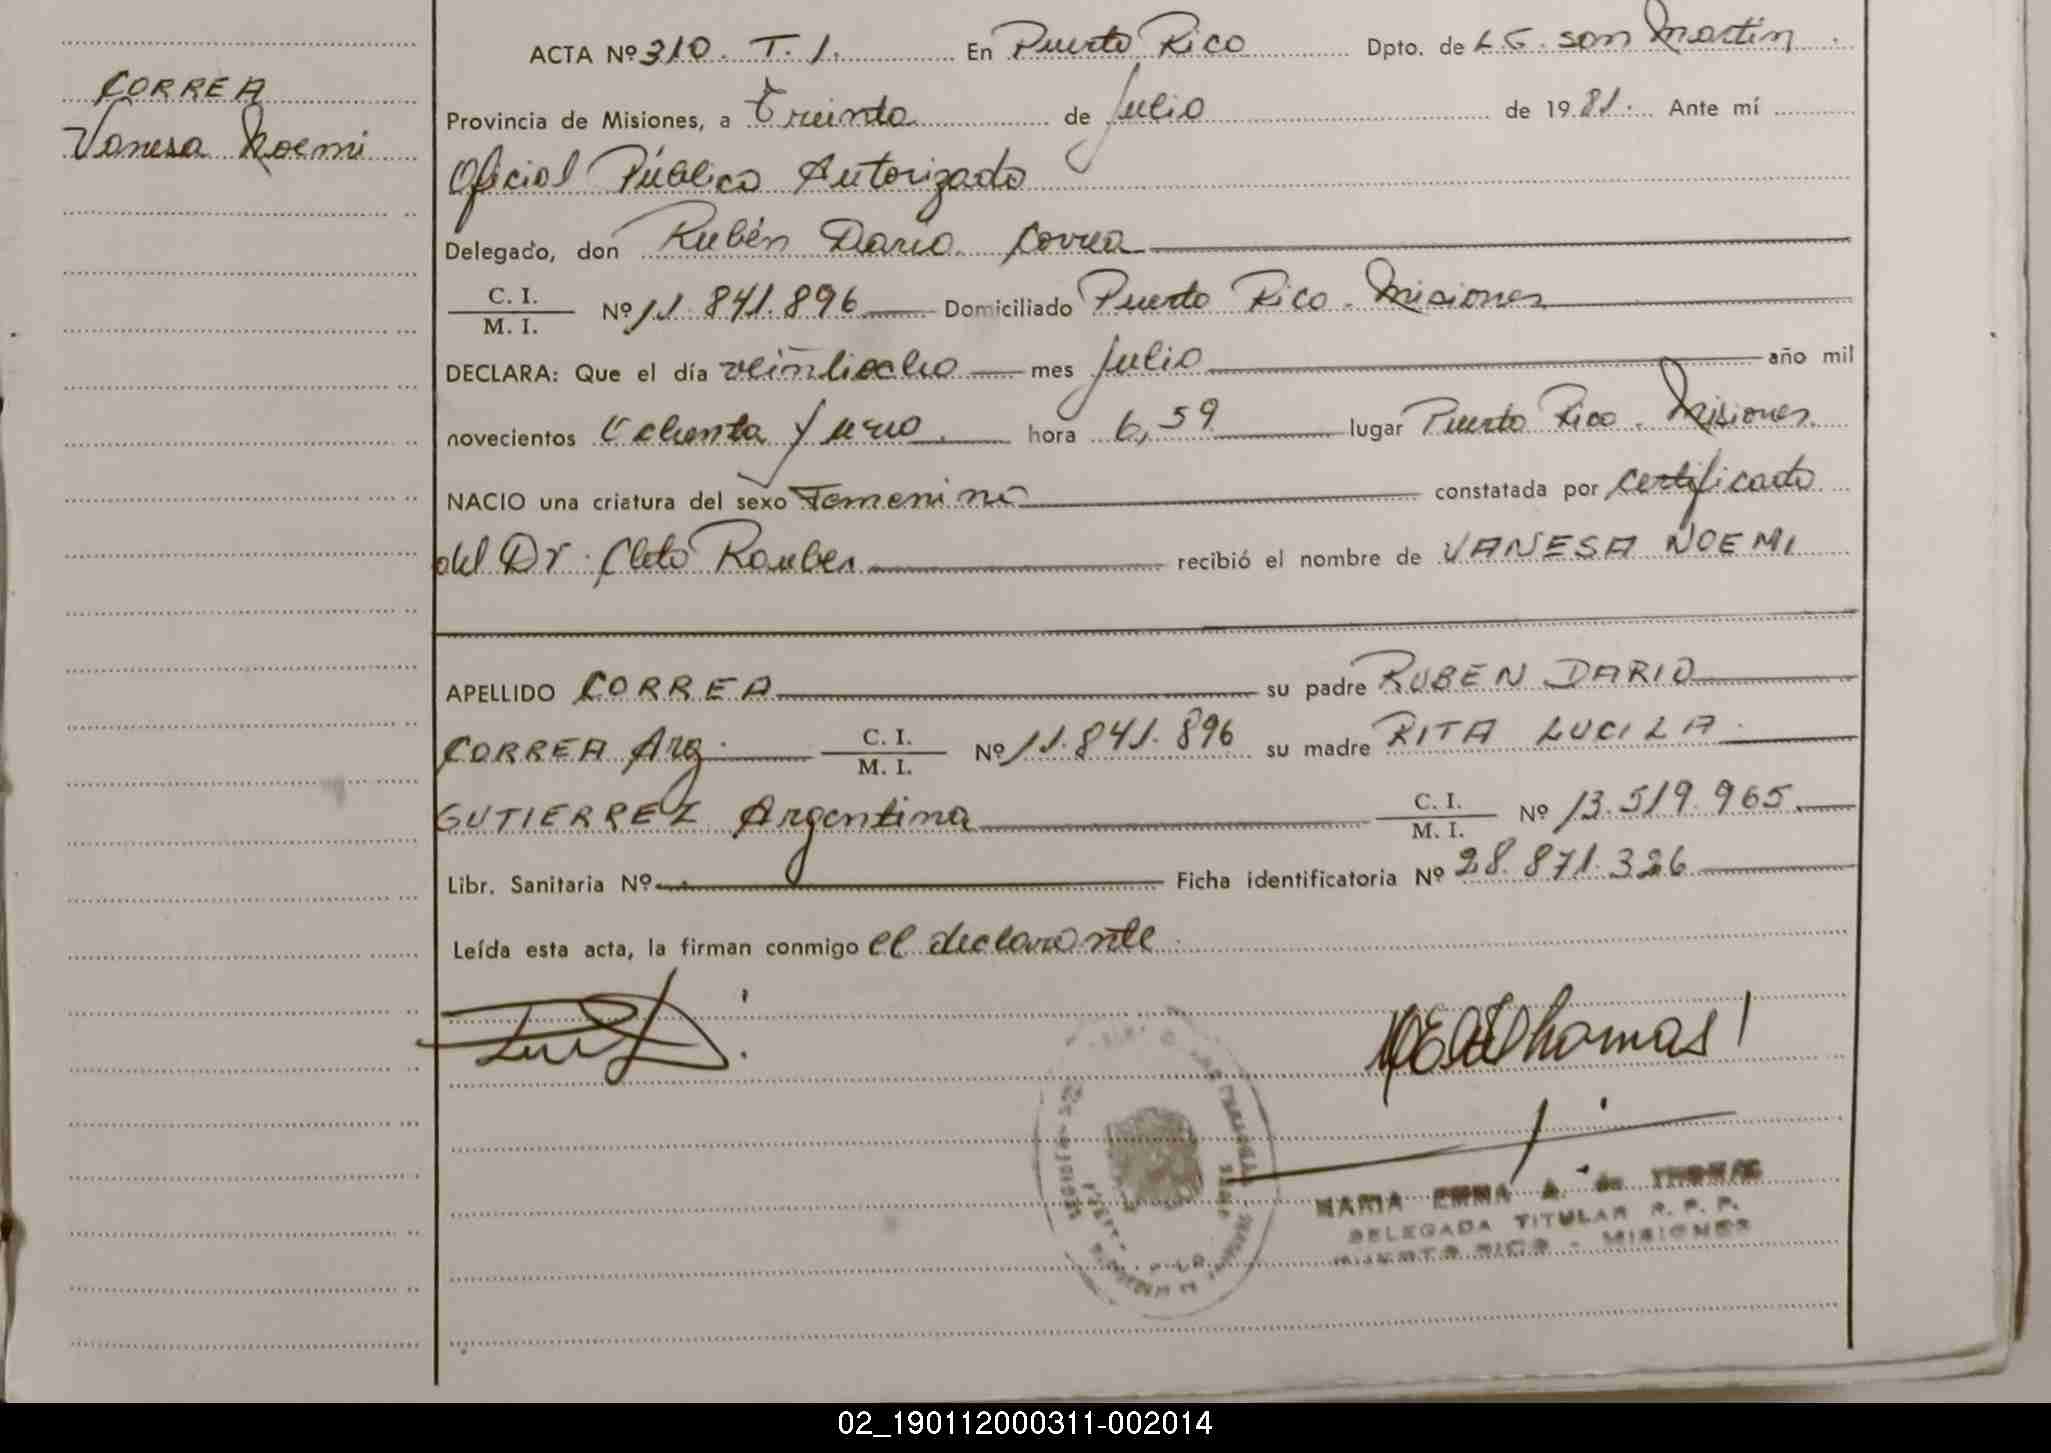 CORREA
Vanesa Noemi
ACTA Nº 310. T. 1. En Puerto Rico Dpto. de L. G. San Martin
Provincia de Misiones, a Treinta de Julio de 1981. Ante mí
Oficial Público Autorizado
Delegado, don Rubén Dario Correa
C. I.
M. I.
Nº 11.841.896 Domiciliado Puerto Rico. Misiones
DECLARA: Que el día veintiocho mes Julio año mil
novecientos Ochenta y uno hora 6,59 lugar Puerto Rico. Misiones.
NACIO una criatura del sexo Femenino constatada por certificado
del Dr. Cleto recibió el nombre de VANESA NOEMI
APELLIDO CORREA su padre RUBEN DARIO
CORREA Arg. C. I.
M. I.
Nº 11.841.896 su madre RITA LUCILA
GUTIERREZ Argentina C. I.
M. I.
Nº 13.519.965
Libr. Sanitaria Nº Ficha identificatoria Nº 28.871.326
Leída esta acta, la firman conmigo el declarante
MARIA EMMA A. de THOMAS
DELEGADA TITULAR R. P. P.
PUERTO RICO - MISIONES
02_190112000311-002014